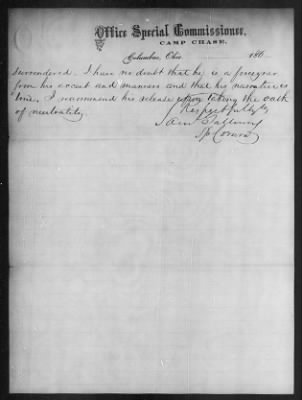 Office Special Commissioner,
CAMP CHASE.
Columbus, Ohio 186
surrendered. I have no doubt that he is a foreigner
from his accent and manners and that his narrative is
true. I recommend his release upon taking the oath
of neutrality.
Respectfully
Sp Comr